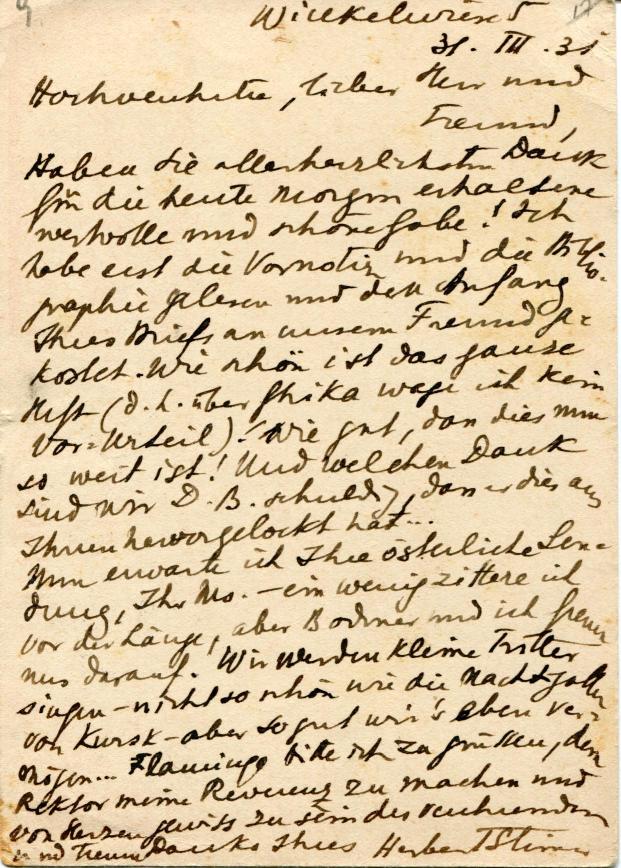 Winkelwiese 5
31. III. 31
Hochverehrter, lieber Herr und
Freund,
Haben Sie allerherzlichsten Dank
für die heute Morgen erhaltene
wertvolle und schöne Gabe! Ich
habe erst die Vornotiz und die Biblio-
graphie gelesen und den Anfang
Ihres Briefs an unsern Freund ge-
kostet. Wie schön ist das ganze
Heft (d. h. über Ghika wage ich kein
Vor-Urteil)! Wie gut, dass dies nun
so weit ist! Und welchen Dank
sind wir D. B. schuldig, dass er dies aus
Ihnen hervorgelockt hat...
Nun erwarte ich Ihre österliche Sen-
dung, Ihr Ms. – ein wenig zittere ich
vor der Länge, aber Bodmer und ich freuen
uns darauf. Wir werden kleine
singen – nicht so schön wie die Nachtigallen
von Kursk – aber so gut wir's eben ver-
mögen... Flamingo bitte ich zu grüssen, dem
Rektor meine Reverenz zu machen und
von Herzen gewiss zu sein des verehrenden
und treuen Danks Ihres Herbert Steiner